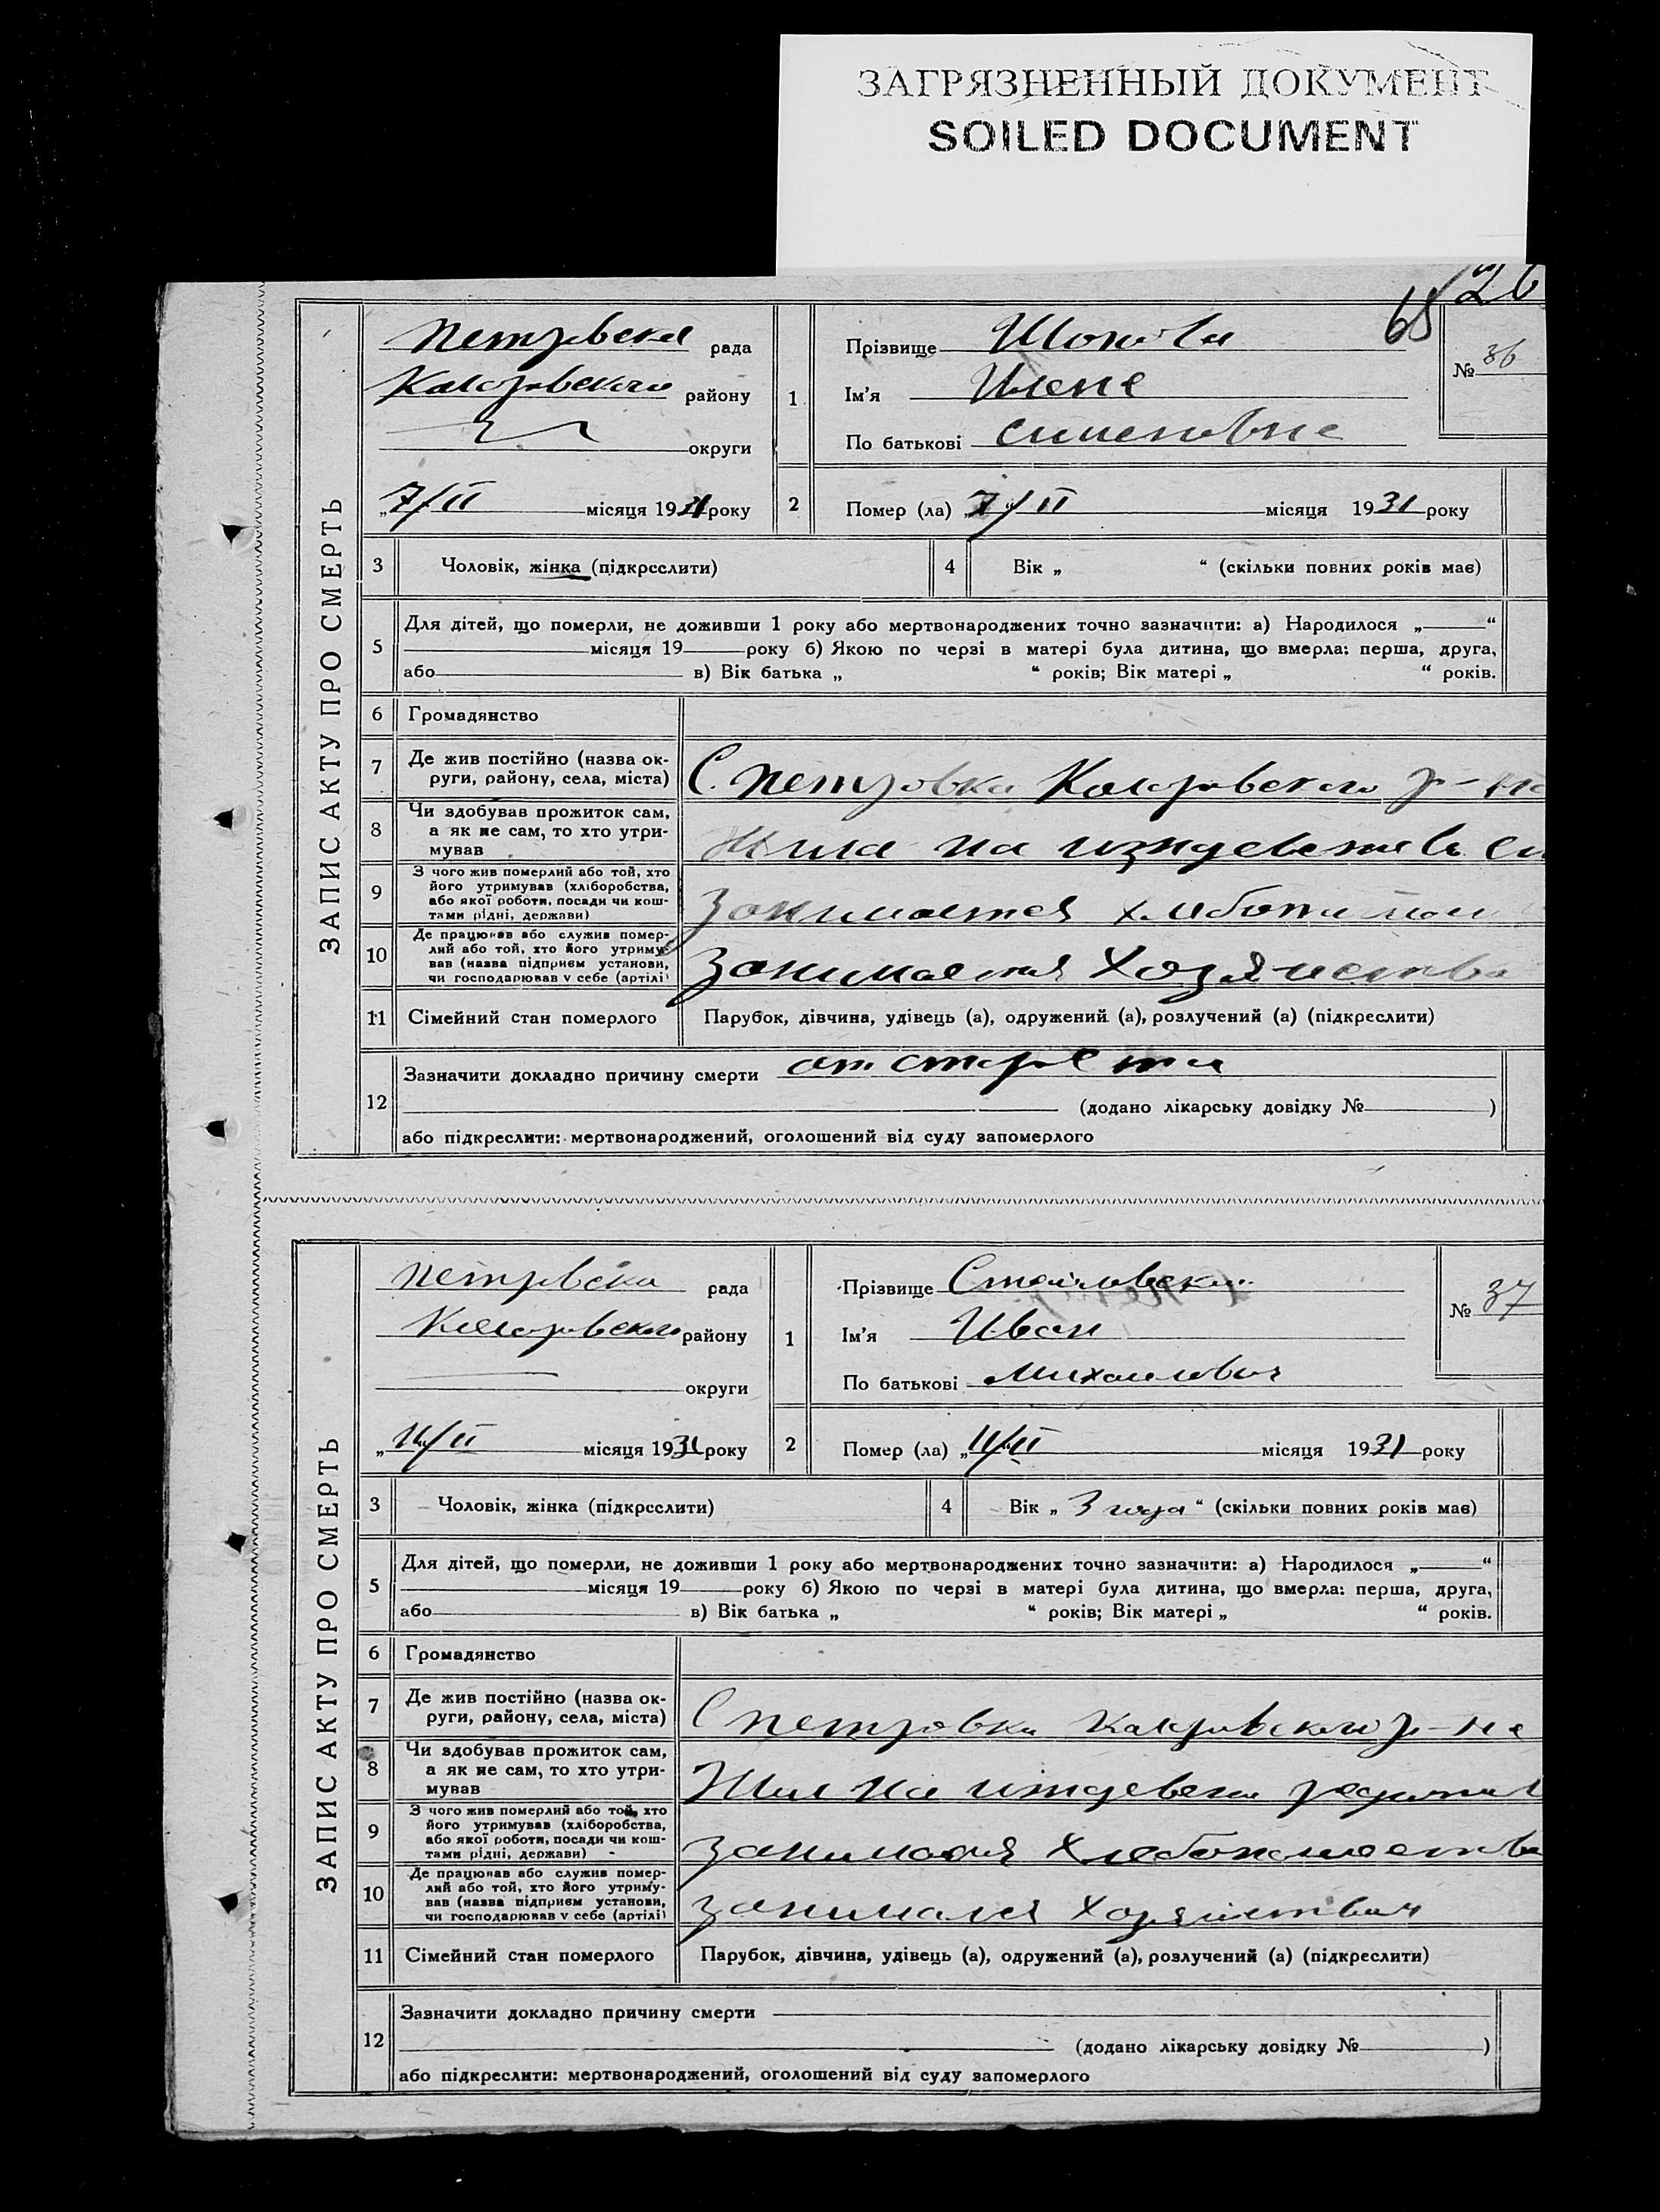 ЗАГРЯЗНЕННЫЙ ДОКУМЕНТ
SOILED DOCUMENT
26
65
ЗАПИС АКТУ ПРО СМЕРТЬ
Петровска рада
району
округи
„7/II місяця 1931 року
1
Прізвище
Ім'я
По батькові Сименовна
№ 36
2
Помер (ла) „7/II місяця 1931 року
3 Чоловік, жінка (підкреслити)
4 Вік „ “ (скільки повних років має)
5
Для дітей, що померли, не доживши 1 року або мертвонароджених точно зазначити: а) Народилося „ “
місяця 19 року б) Якою по черзі в матері була дитина, що вмерла: перша, друга,
або в) Вік батька „ “ років; Вік матері „ “ років.
6 Громадянство
7
Де жив постійно (назва ок-
руги, району, села, міста)
С. Петровка р-на
8
Чи здобував прожиток сам,
а як не сам, то хто утри-
мував
Жила на
9
З чого жив померлий або той, хто
його утримував (хліборобства,
або якої роботи, посади чи кош-
тами рідні, держави)
Занимается
10
Де працював або служив помер-
лий або той, хто його утриму-
вав (назва підприєм установи,
чи господарював у себе (артілі)
Занимается
11 Сімейний стан померлого
Парубок, дівчина, удівець (а), одружений (а), розлучений (а) (підкреслити)
12
Зазначити докладно причину смерти от старости
(додано лікарську довідку № )
або підкреслити: мертвонароджений, оголошений від суду запомерлого
ЗАПИС АКТУ ПРО СМЕРТЬ
Петровска рада
району
округи
„11/II місяця 1931 року
1
Прізвище
Ім'я Иван
По батькові Михаилович
№ 37
2
Помер (ла) „11/II місяця 1931 року
3 Чоловік, жінка (підкреслити)
4 Вік „3 года“ (скільки повних років має)
5
Для дітей, що померли, не доживши 1 року або мертвонароджених точно зазначити: а) Народилося „ “
місяця 19 року б) Якою по черзі в матері була дитина, що вмерла: перша, друга,
або в) Вік батька „ “ років; Вік матері „ “ років.
6 Громадянство
7
Де жив постійно (назва ок-
руги, району, села, міста)
С Петровка р-на
8
Чи здобував прожиток сам,
а як не сам, то хто утри-
мував
Жил на
9
З чого жив померлий або той, хто
його утримував (хліборобства,
або якої роботи, посади чи кош-
тами рідні, держави)
10
Де працював або служив помер-
лий або той, хто його утриму-
вав (назва підприєм установи,
чи господарював у себе (артілі)
Занимался
11 Сімейний стан померлого
Парубок, дівчина, удівець (а), одружений (а), розлучений (а) (підкреслити)
12
Зазначити докладно причину смерти
(додано лікарську довідку № )
або підкреслити: мертвонароджений, оголошений від суду запомерлого